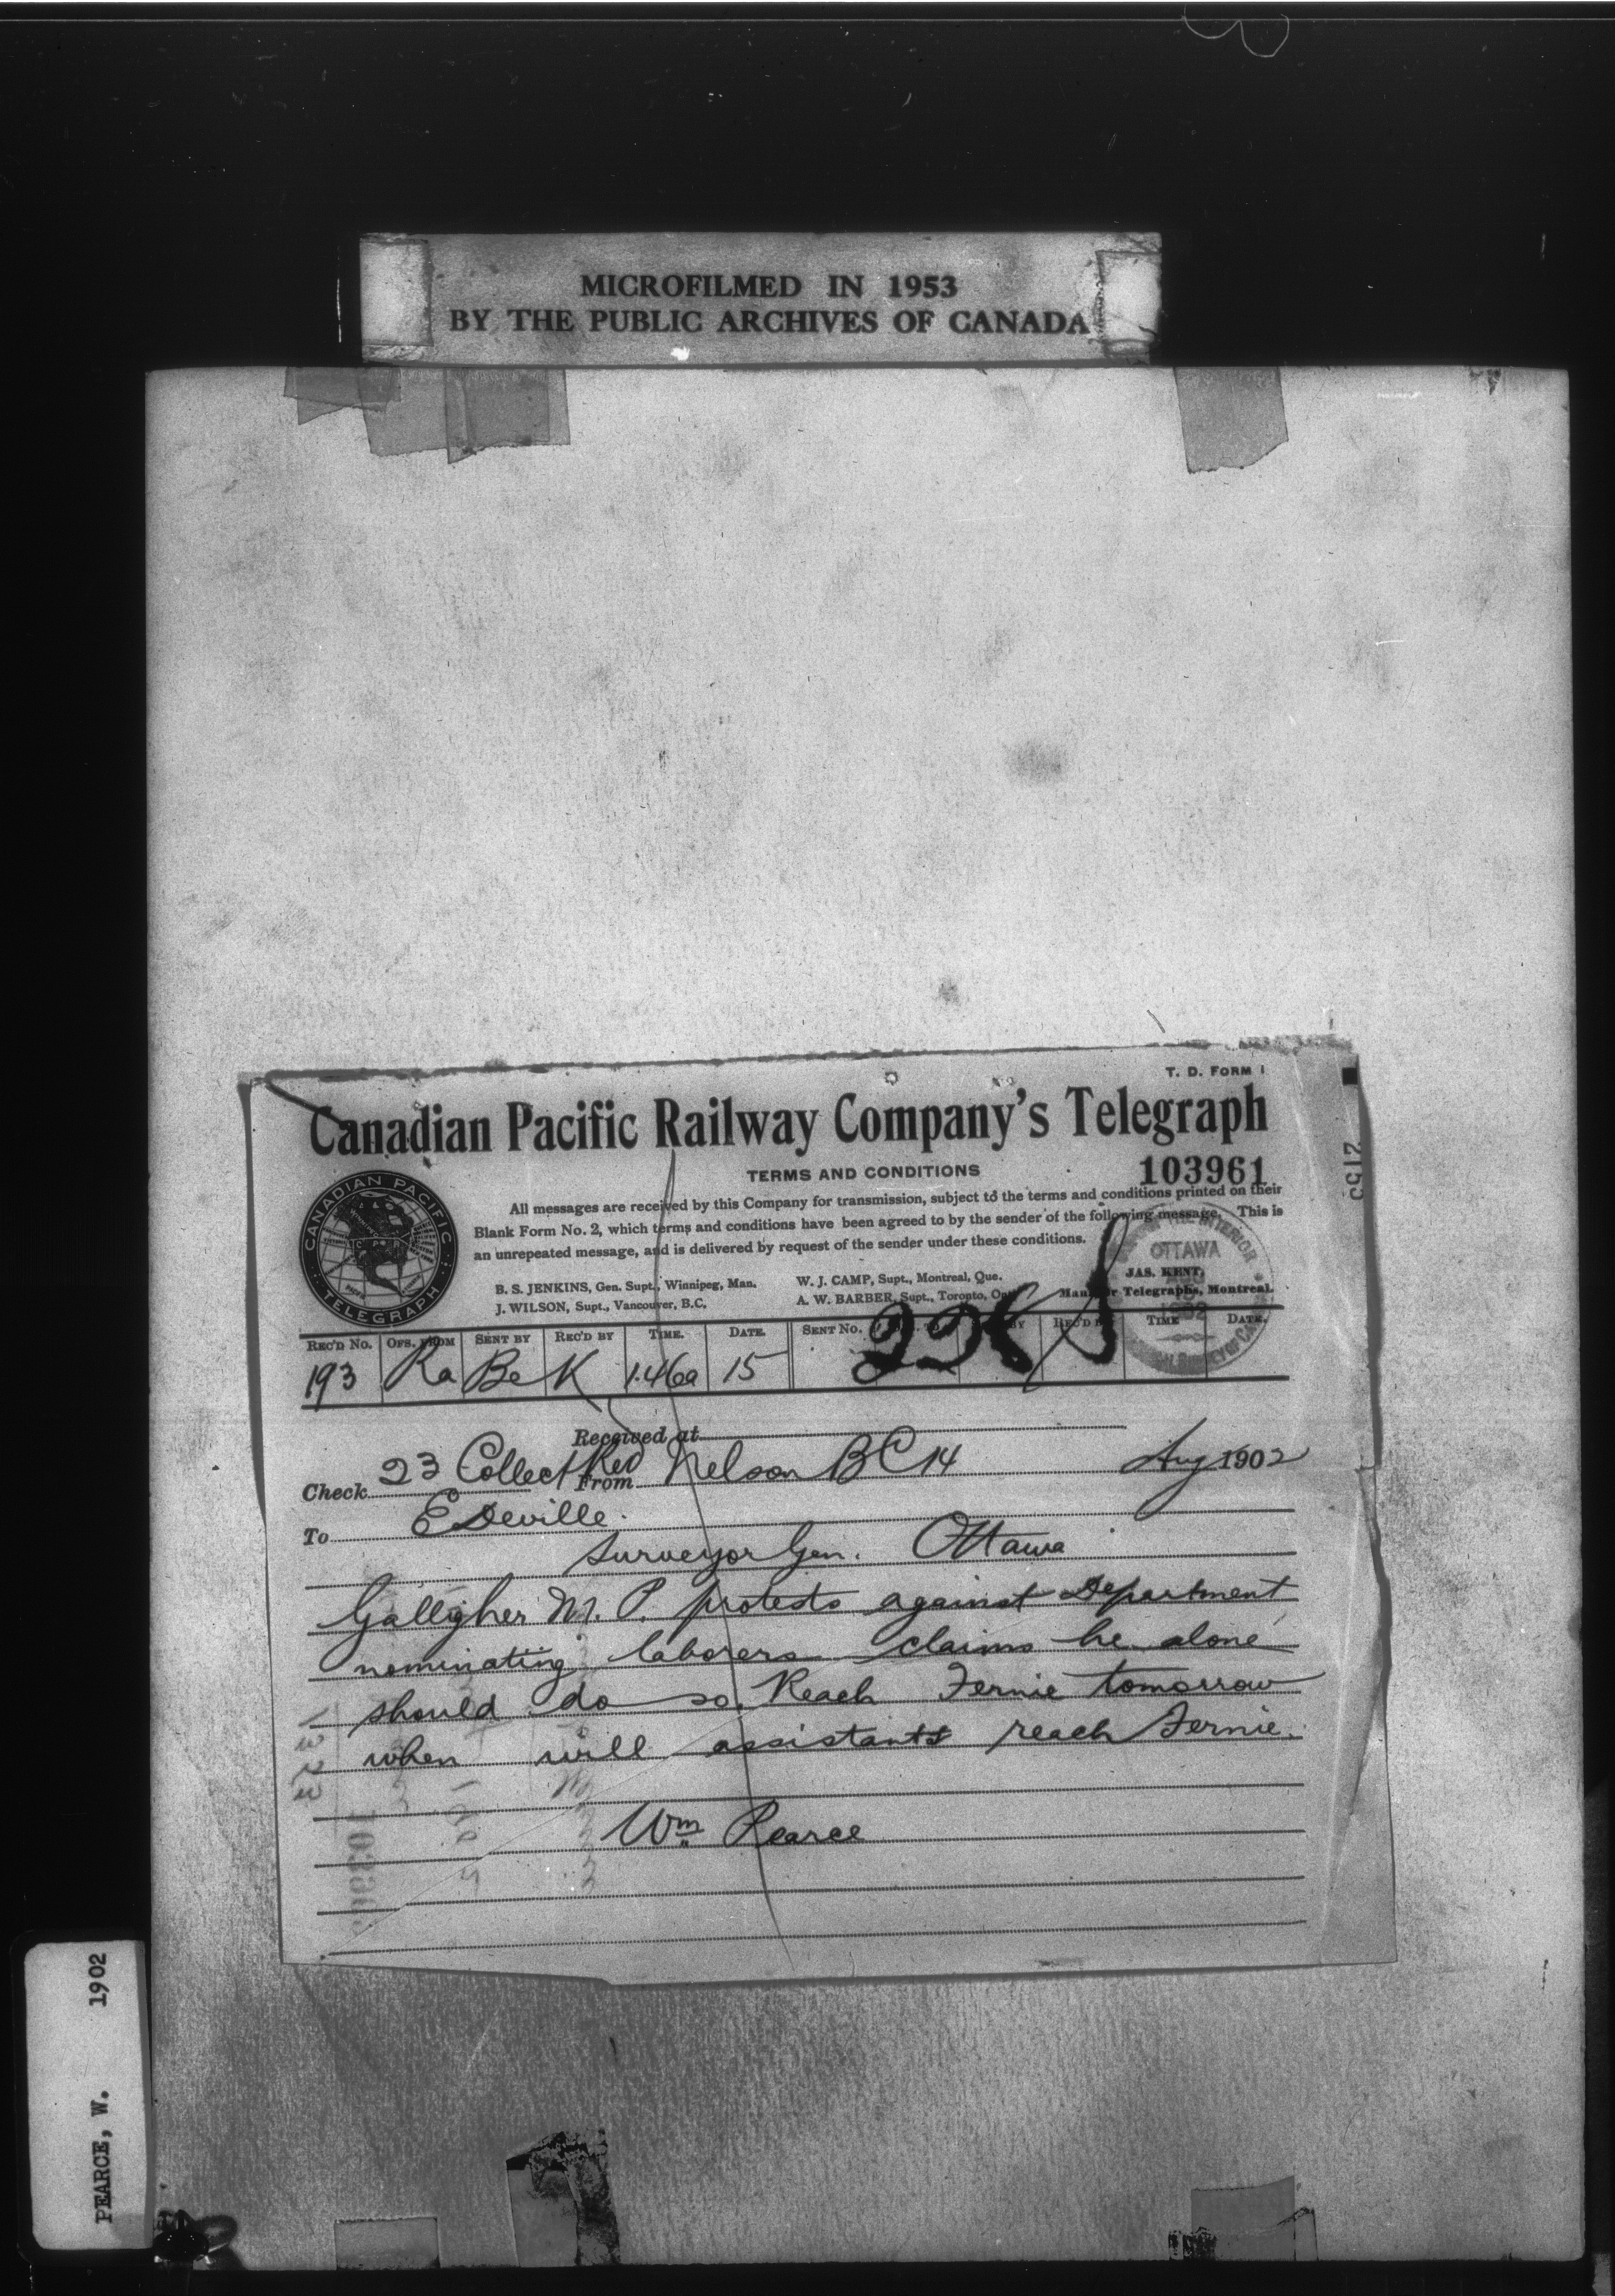 MICROFILMED IN 1953
BY THE PUBLIC ARCHIVES OF CANADA
T. D. FORM 1
Canadian Pacific Railway Company's Telegraph
TERMS AND CONDITIONS
103961
2155
All messages are received by this Company for transmission, subject to the terms and conditions printed on their
Blank Form No. 2, which terms and conditions have been agreed to by the sender of the following message. This is
an unrepeated message, and is delivered by request of the sender under these conditions.
CANADIAN PACIFIC
C P R
TELEGRAPH
B. S. JENKINS, Gen. Supt., Winnipeg, Man.
J. WILSON, Supt., Vancouver, B.C.
W. J. CAMP, Supt., Montreal, Que.
A. W. BARBER, Supt., Toronto, Ont.
JAS. KENT,
Manager Telegraphs, Montreal.
THE INTERIOR
OTTAWA
1902
REC'D No. OFS. FROM SENT BY REC'D BY TIME. DATE. SENT No. BY REC'D BY TIME DATE.
193 Ra Be K 1.46a 15
Received at
Check 23 Collect Red From Nelson BC 14 Aug 1902
To E Deville.
Surveyor Gen. Ottawa
Galligher M. P. protests against Department
nominating laborers claims he alone
should do so. Reach Fernie tomorrow
when will assistants reach Fernie.
Wm Pearce
PEARCE, W. 1902